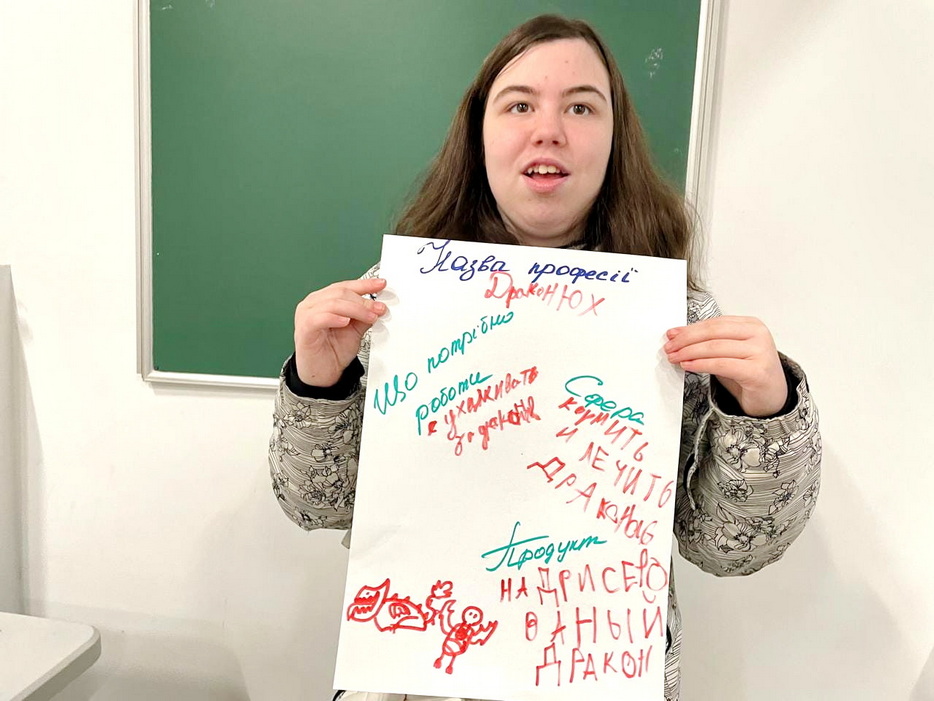 Назва професії
ДраконЮХ
Що потрібно
роботи
ухаживать
за
Сфера
кормИТЬ
И ЛЕЧИТЬ
ДРАКоНов
Продукт
НАДРИСЕРО
ВАНЫЙ
ДРАКОН